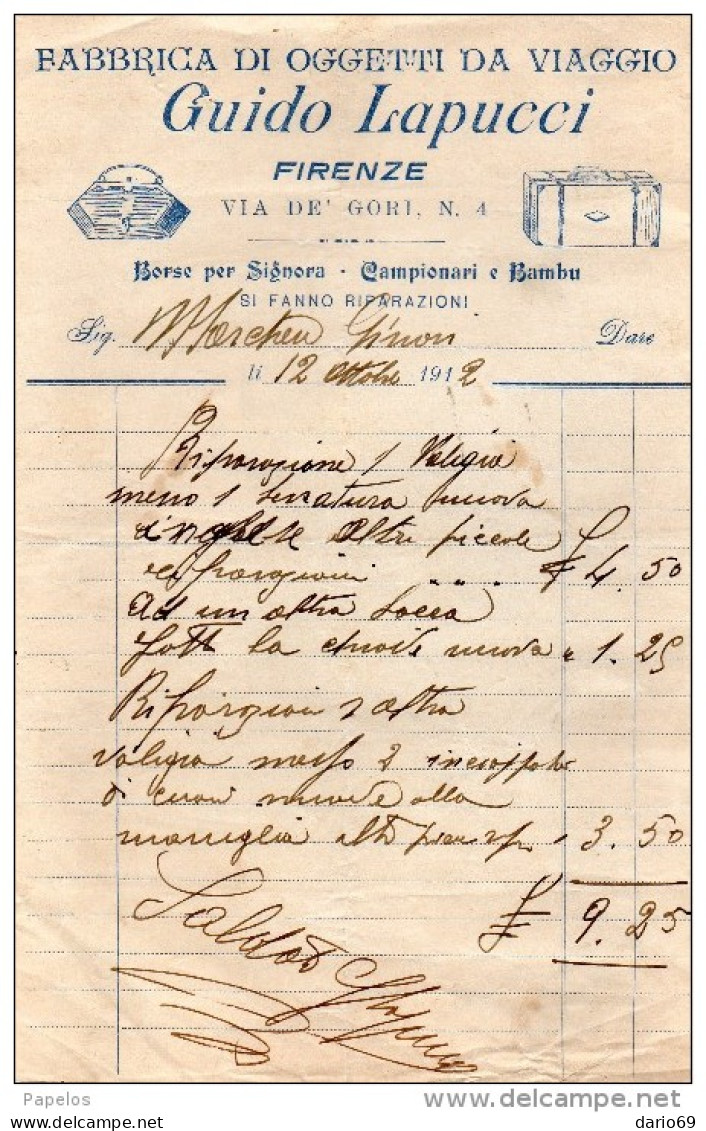 FABBRICA DI OGGETTI DA VIAGGIO
Guido Lapucci
FIRENZE
VIA DE' GORI, N. 4
Borse per Signora - Campionari e Bambu
SI FANNO RIPARAZIONI
Sig. Ginori Dare
li 12 Ottobre 1912
Riparazione 1 Valigia
1 serratura nuova
altri piccole
riparazioni " " " £ 4.50
Ad un altra Sacca
la nuova " 1.25
Riparazioni 1 altra
valigia messo 2
di nuove alla
maniglia " 3.50
£ 9.25
Saldato
Lapucci
Papelos
delcampe.net
dario69